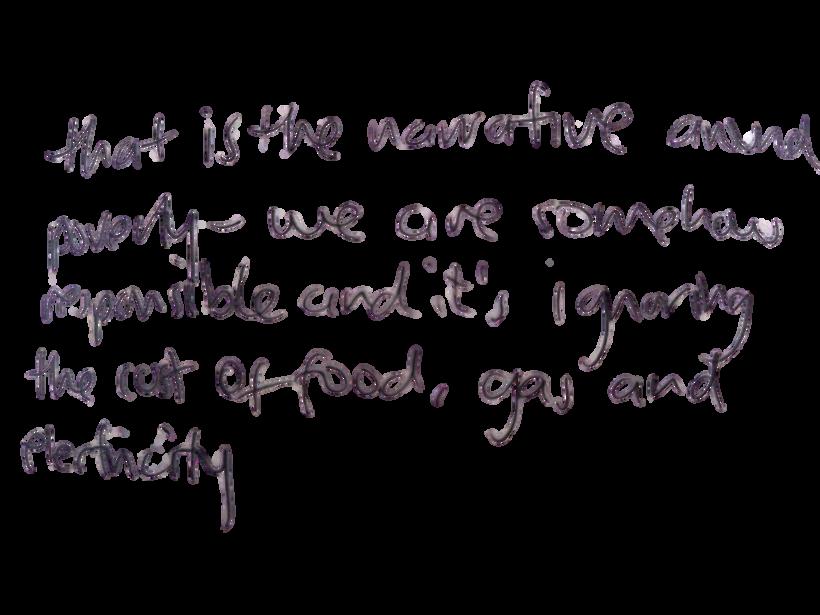 that is the narrative around
poverty - we are somehow
responsible and it's ignoring
the cost of food, gas and
electricity